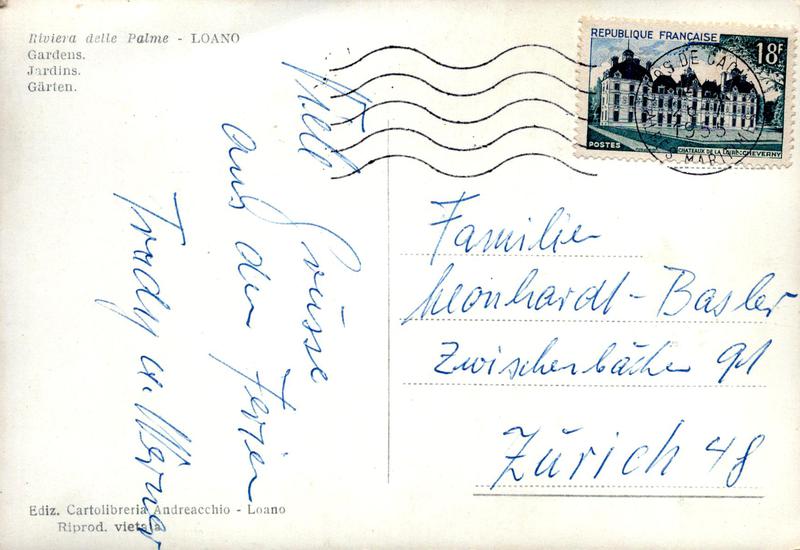 Riviera delle Palme - LOANO
Gardens.
Jardins.
Gärten.
REPUBLIQUE FRANÇAISE
18F
POSTES
CHATEAUX DE LA LOIRE: CHEVERNY
1955
Viele Grüsse
aus den Ferien
Trudy u. Werner
Familien
Leonhardt-Basler
Zwischenbächen 91
Zürich 48
Ediz. Cartolibreria Andreacchio - Loano
Riprod. vietata